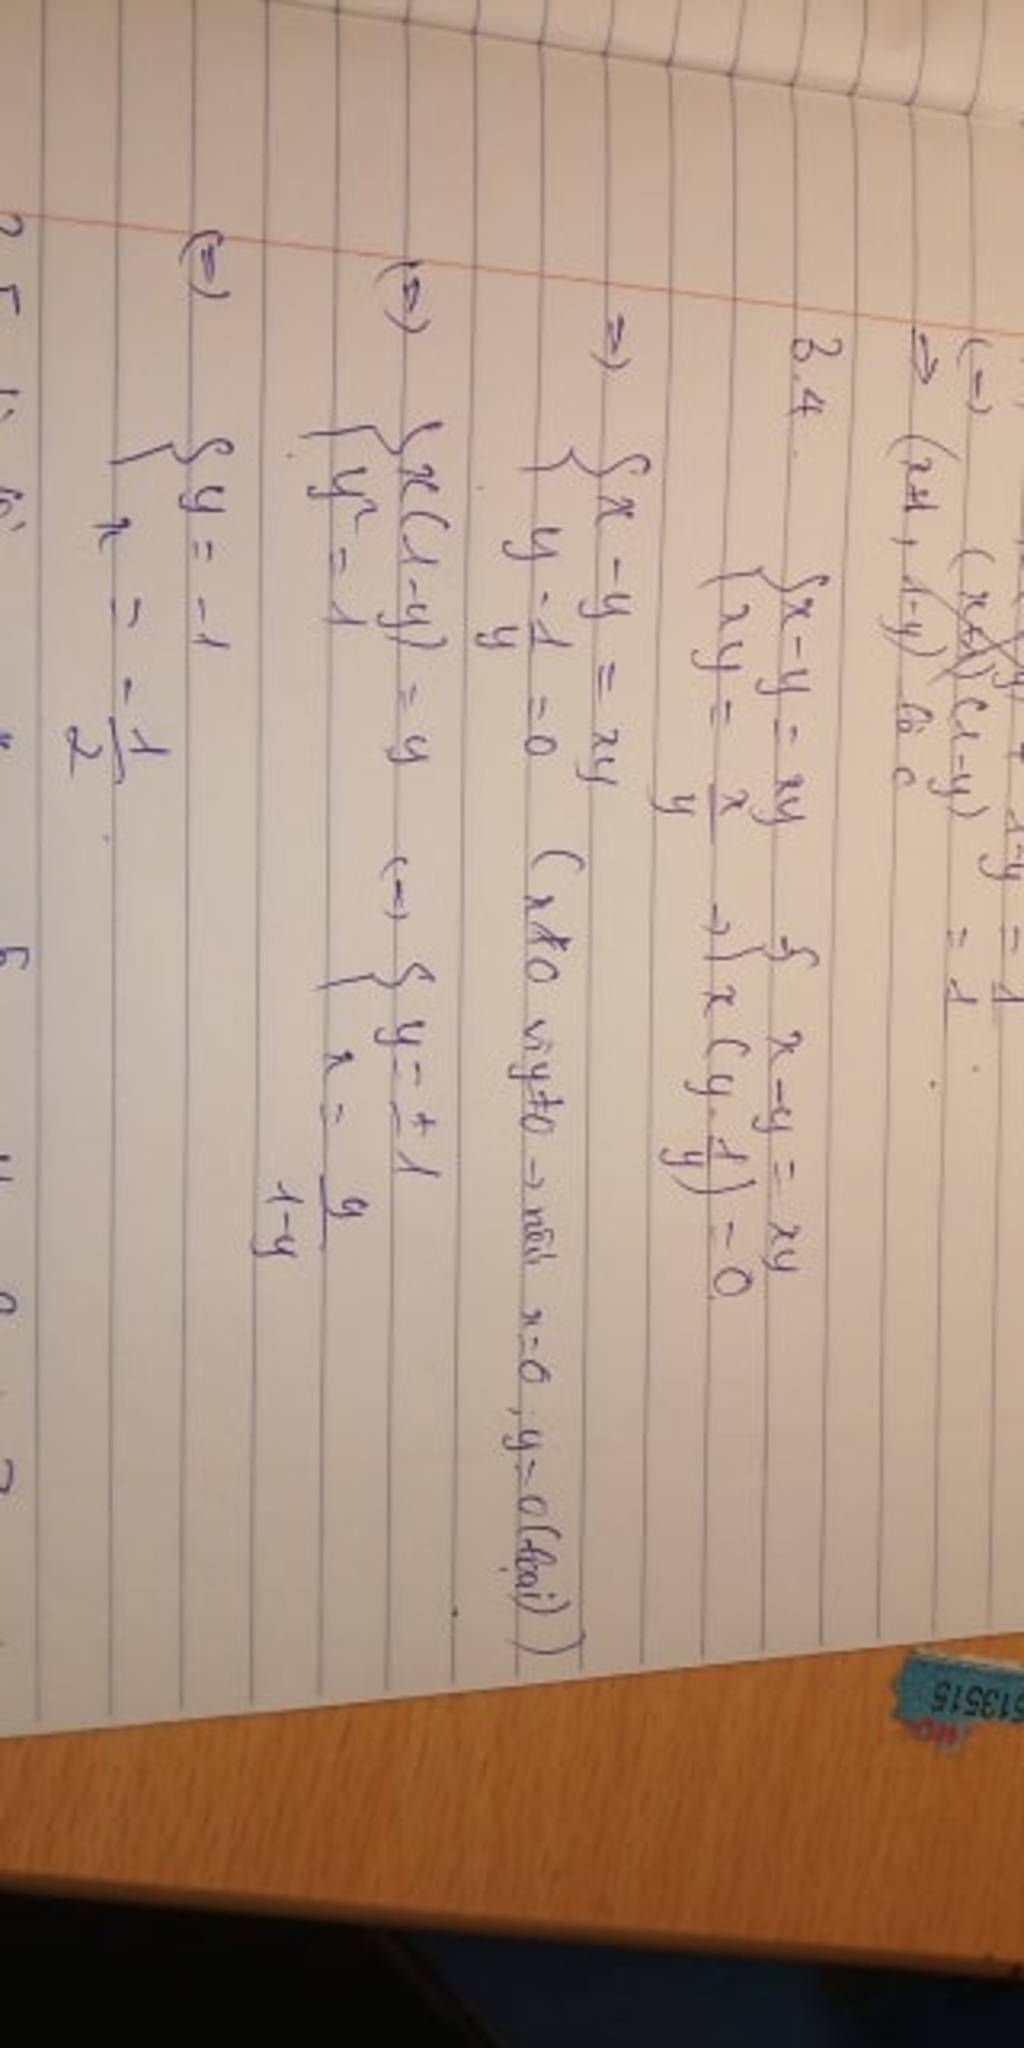 1-y = 1
(x+1)(1-y) = 1
→ (x+1, 1-y) là c
3.4. { x-y = xy { x-y = xy
{ xy = x/y → { x(y-1/y) = 0
=> { x-y = xy
{ y-1/y = 0 (x≠0 vì y≠0 → nếu x=0, y=0 (loại))
(=) { x(1-y) = y (-) { y = ±1
{ y² = 1 { x = y/(1-y)
(=) { y = -1
{ x = -1/2
513515